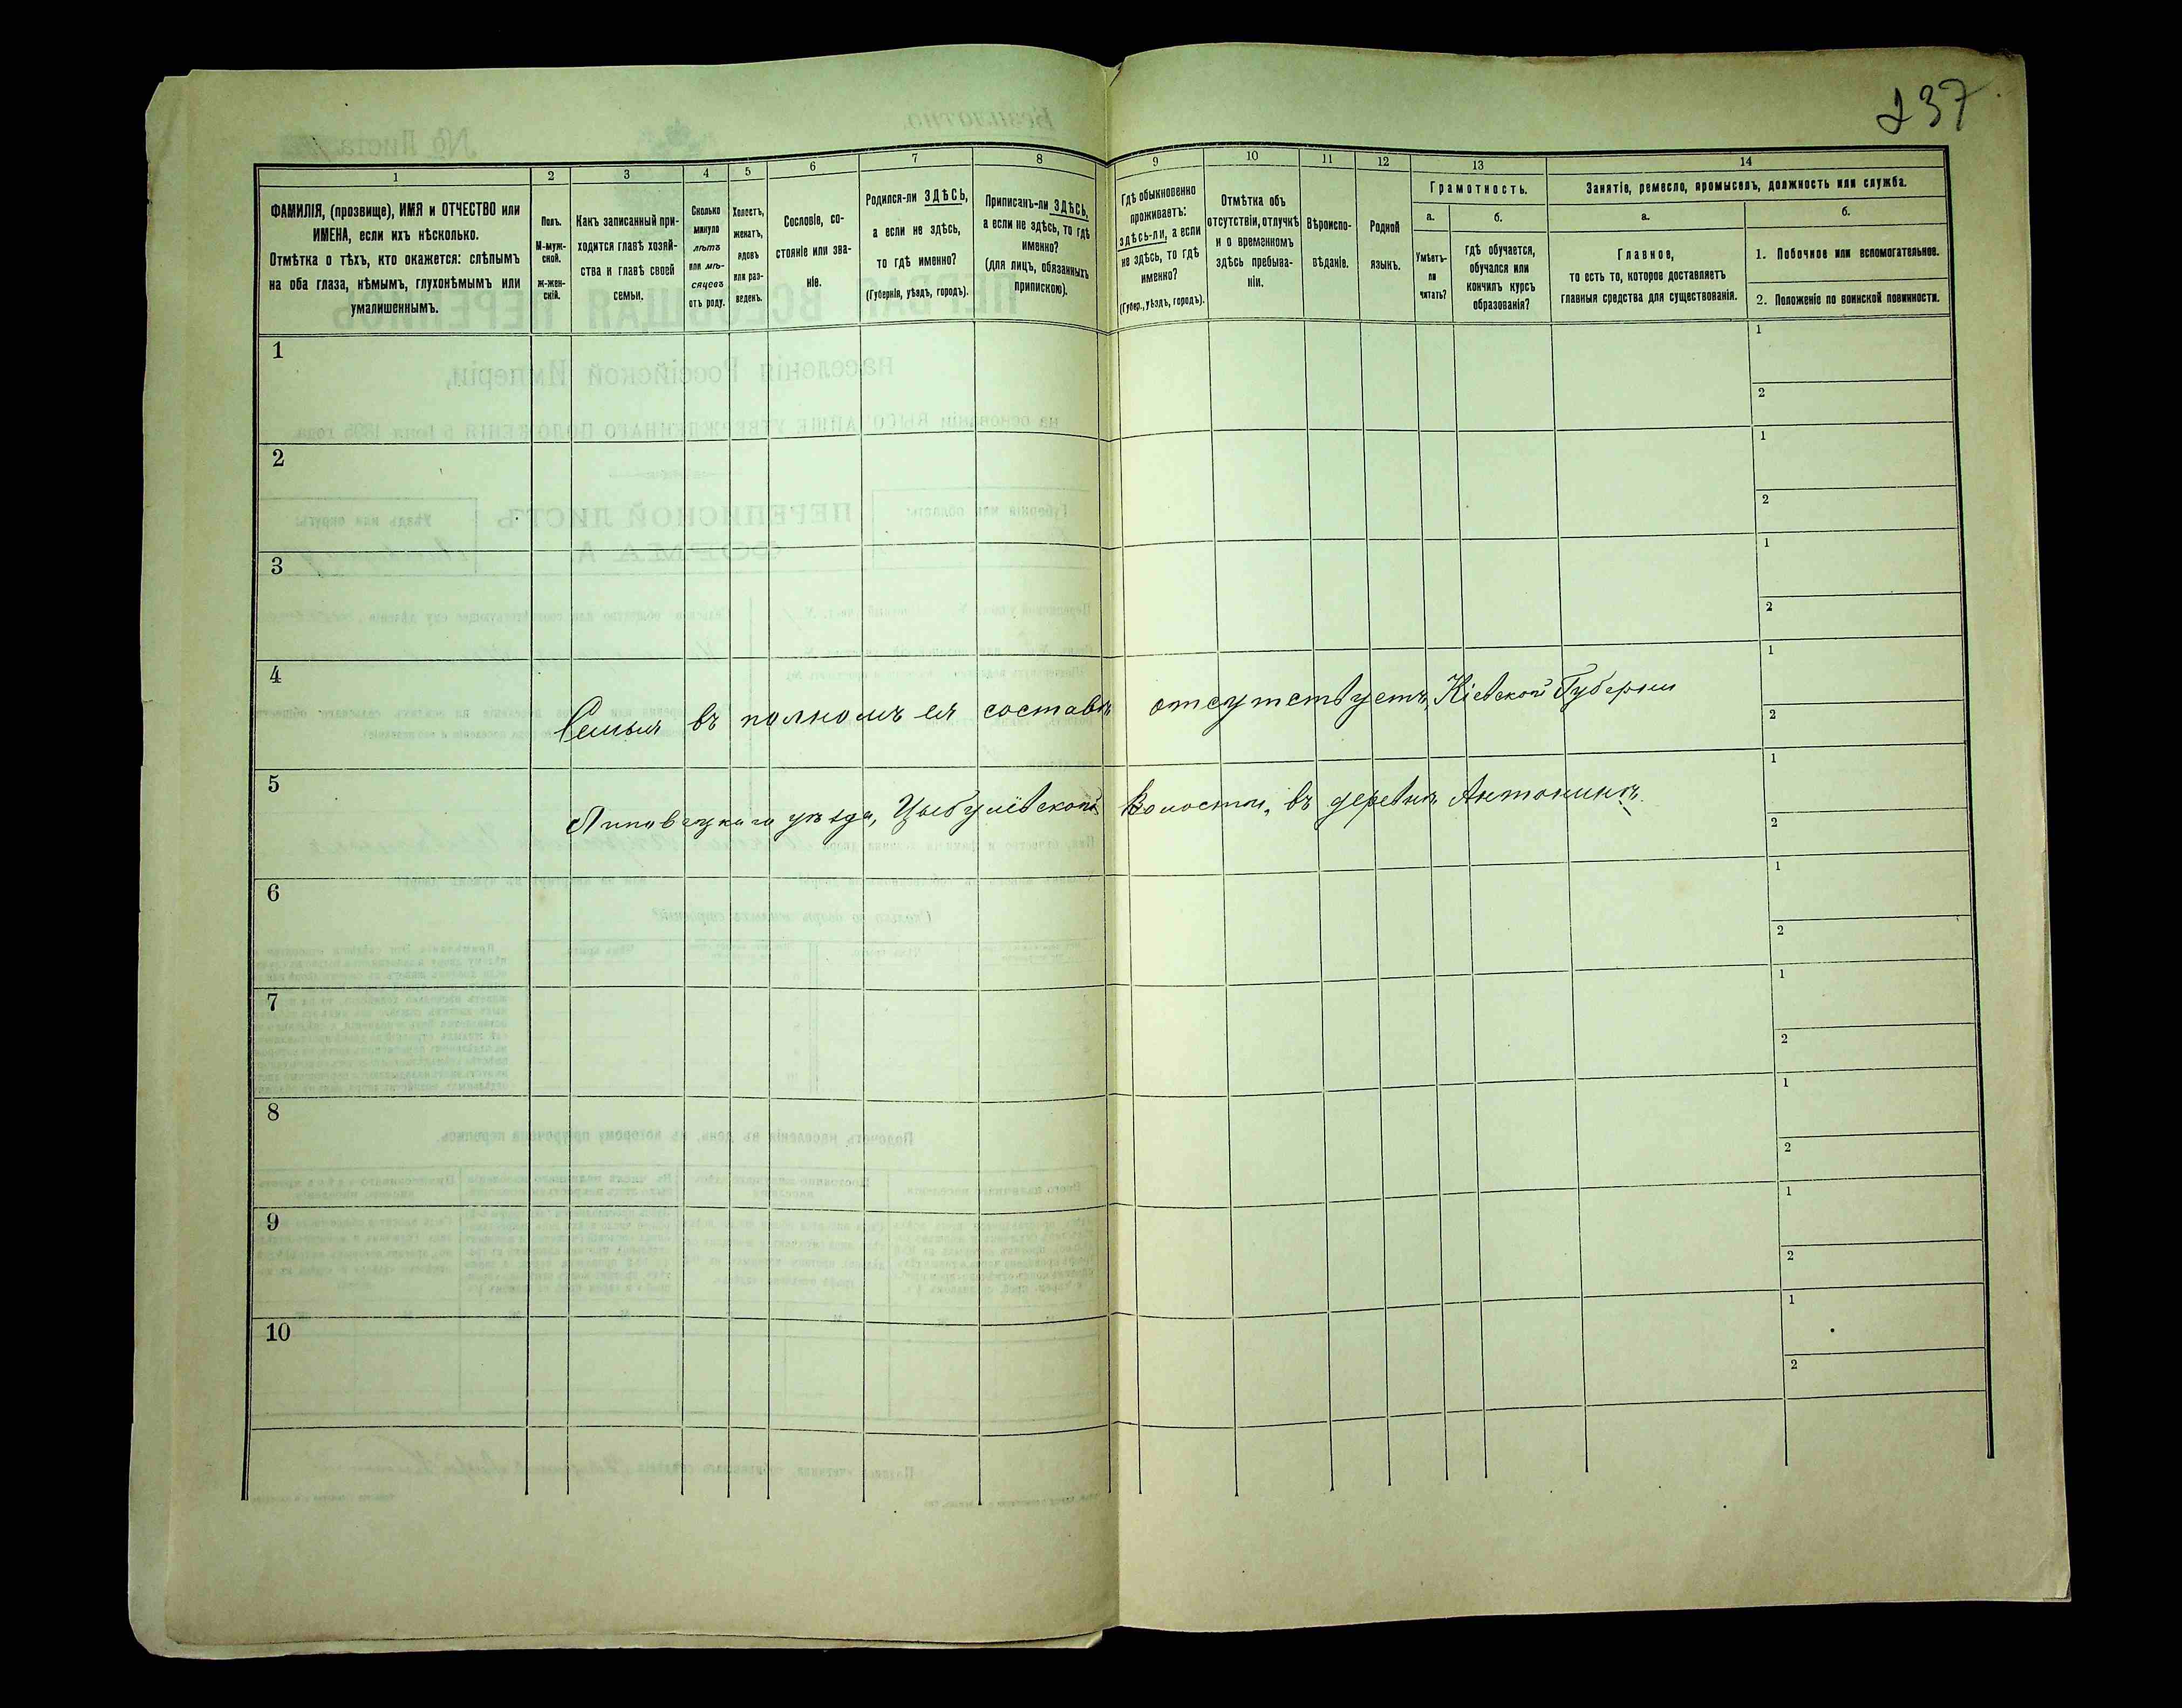 237
1 2 3 4 5 6 7 8 9 10 11 12 13 14
ФАМИЛІЯ, (прозвище), ИМЯ и ОТЧЕСТВО или
ИМЕНА, если ихъ нѣсколько.
Отмѣтка о тѣхъ, кто окажется: слѣпымъ
на оба глаза, нѣмымъ, глухонѣмымъ или
умалишеннымъ.
Полъ.
М-муж-
ской.
ж-жен-
скій.
Какъ записанный при-
ходится главѣ хозяй-
ства и главѣ своей
семьи.
Сколько
минуло
лѣтъ
или мѣ-
сяцевъ
отъ роду.
Холостъ,
женатъ,
вдовъ
или раз-
веденъ.
Сословіе, со-
стояніе или зва-
ніе.
Родился-ли ЗДѢСЬ,
а если не здѣсь,
то гдѣ именно?
(Губернія, уѣздъ, городъ).
Приписанъ-ли ЗДѢСЬ,
а если не здѣсь, то гдѣ
именно?
(для лицъ, обязанныхъ
припискою).
Гдѣ обыкновенно
проживаетъ:
здѣсь-ли, а если
не здѣсь, то гдѣ
именно?
(Губер., уѣздъ, городъ).
Отмѣтка объ
отсутствіи, отлучкѣ
и о временномъ
здѣсь пребыва-
ніи.
Вѣроиспо-
вѣданіе.
Родной
языкъ.
Грамотность.
а.
Умѣетъ-
ли
читать?
б.
гдѣ обучается,
обучался или
кончилъ курсъ
образованія?
Занятіе, ремесло, промыселъ, должность или служба.
а.
Главное,
то есть то, которое доставляетъ
главныя средства для существованія.
б.
1. Побочное или вспомогательное.
2. Положеніе по воинской повинности.
1 1
2
2 1
2
3 1
2
4 1
Семья въ полномъ ея составѣ отсутствуетъ, Кіевской Губерніи
2
5 1
Липовецкаго уѣзда, Цыбулёвской Волости, въ деревнѣ Антонинѣ.
2
6 1
2
7 1
2
8 1
2
9 1
2
10 1
2